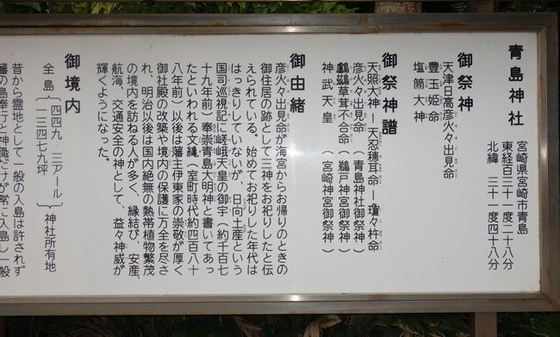 青島神社
宮崎県宮崎市青島
東経百三十一度二十八分
北緯 三十一度四十八分
御祭神
天津日高彦火々出見命
豊玉姫命
塩筒大神
御祭神譜
天照大神―天忍穂耳命―瓊々杵命
彦火々出見命 (青島神社御祭神)
鸕鷀草葺不合命 (鵜戸神宮御祭神)
神武天皇 (宮崎神宮御祭神)
御由緒
彦火々出見命が海宮からお帰りのときの
御住居の跡として三神をお祀りしたと伝
えられている。始めてお祀りした年代は
はっきりしていないが、日向土産という
国司巡視記に嵯峨天皇の御宇(約千百七
十九年前)奉崇青島大明神と書いてあっ
たといわれる文亀(室町時代約四百八十
八年前)以後は藩主伊東家の崇敬が厚く
御社殿の改築や境内の保護に万全を尽さ
れ、明治以後は国内絶無の熱帯植物繁茂
の境内を訪ねる人が多く、縁結び、安産、
航海、交通安全の神として、益々神威が
輝くようになった。
御境内
全島(四四九・三アール)(一三四七九坪)神社所有地
昔から霊地として一般の入島は許されず
藩の島奉行と神職だけが常に入島し一般